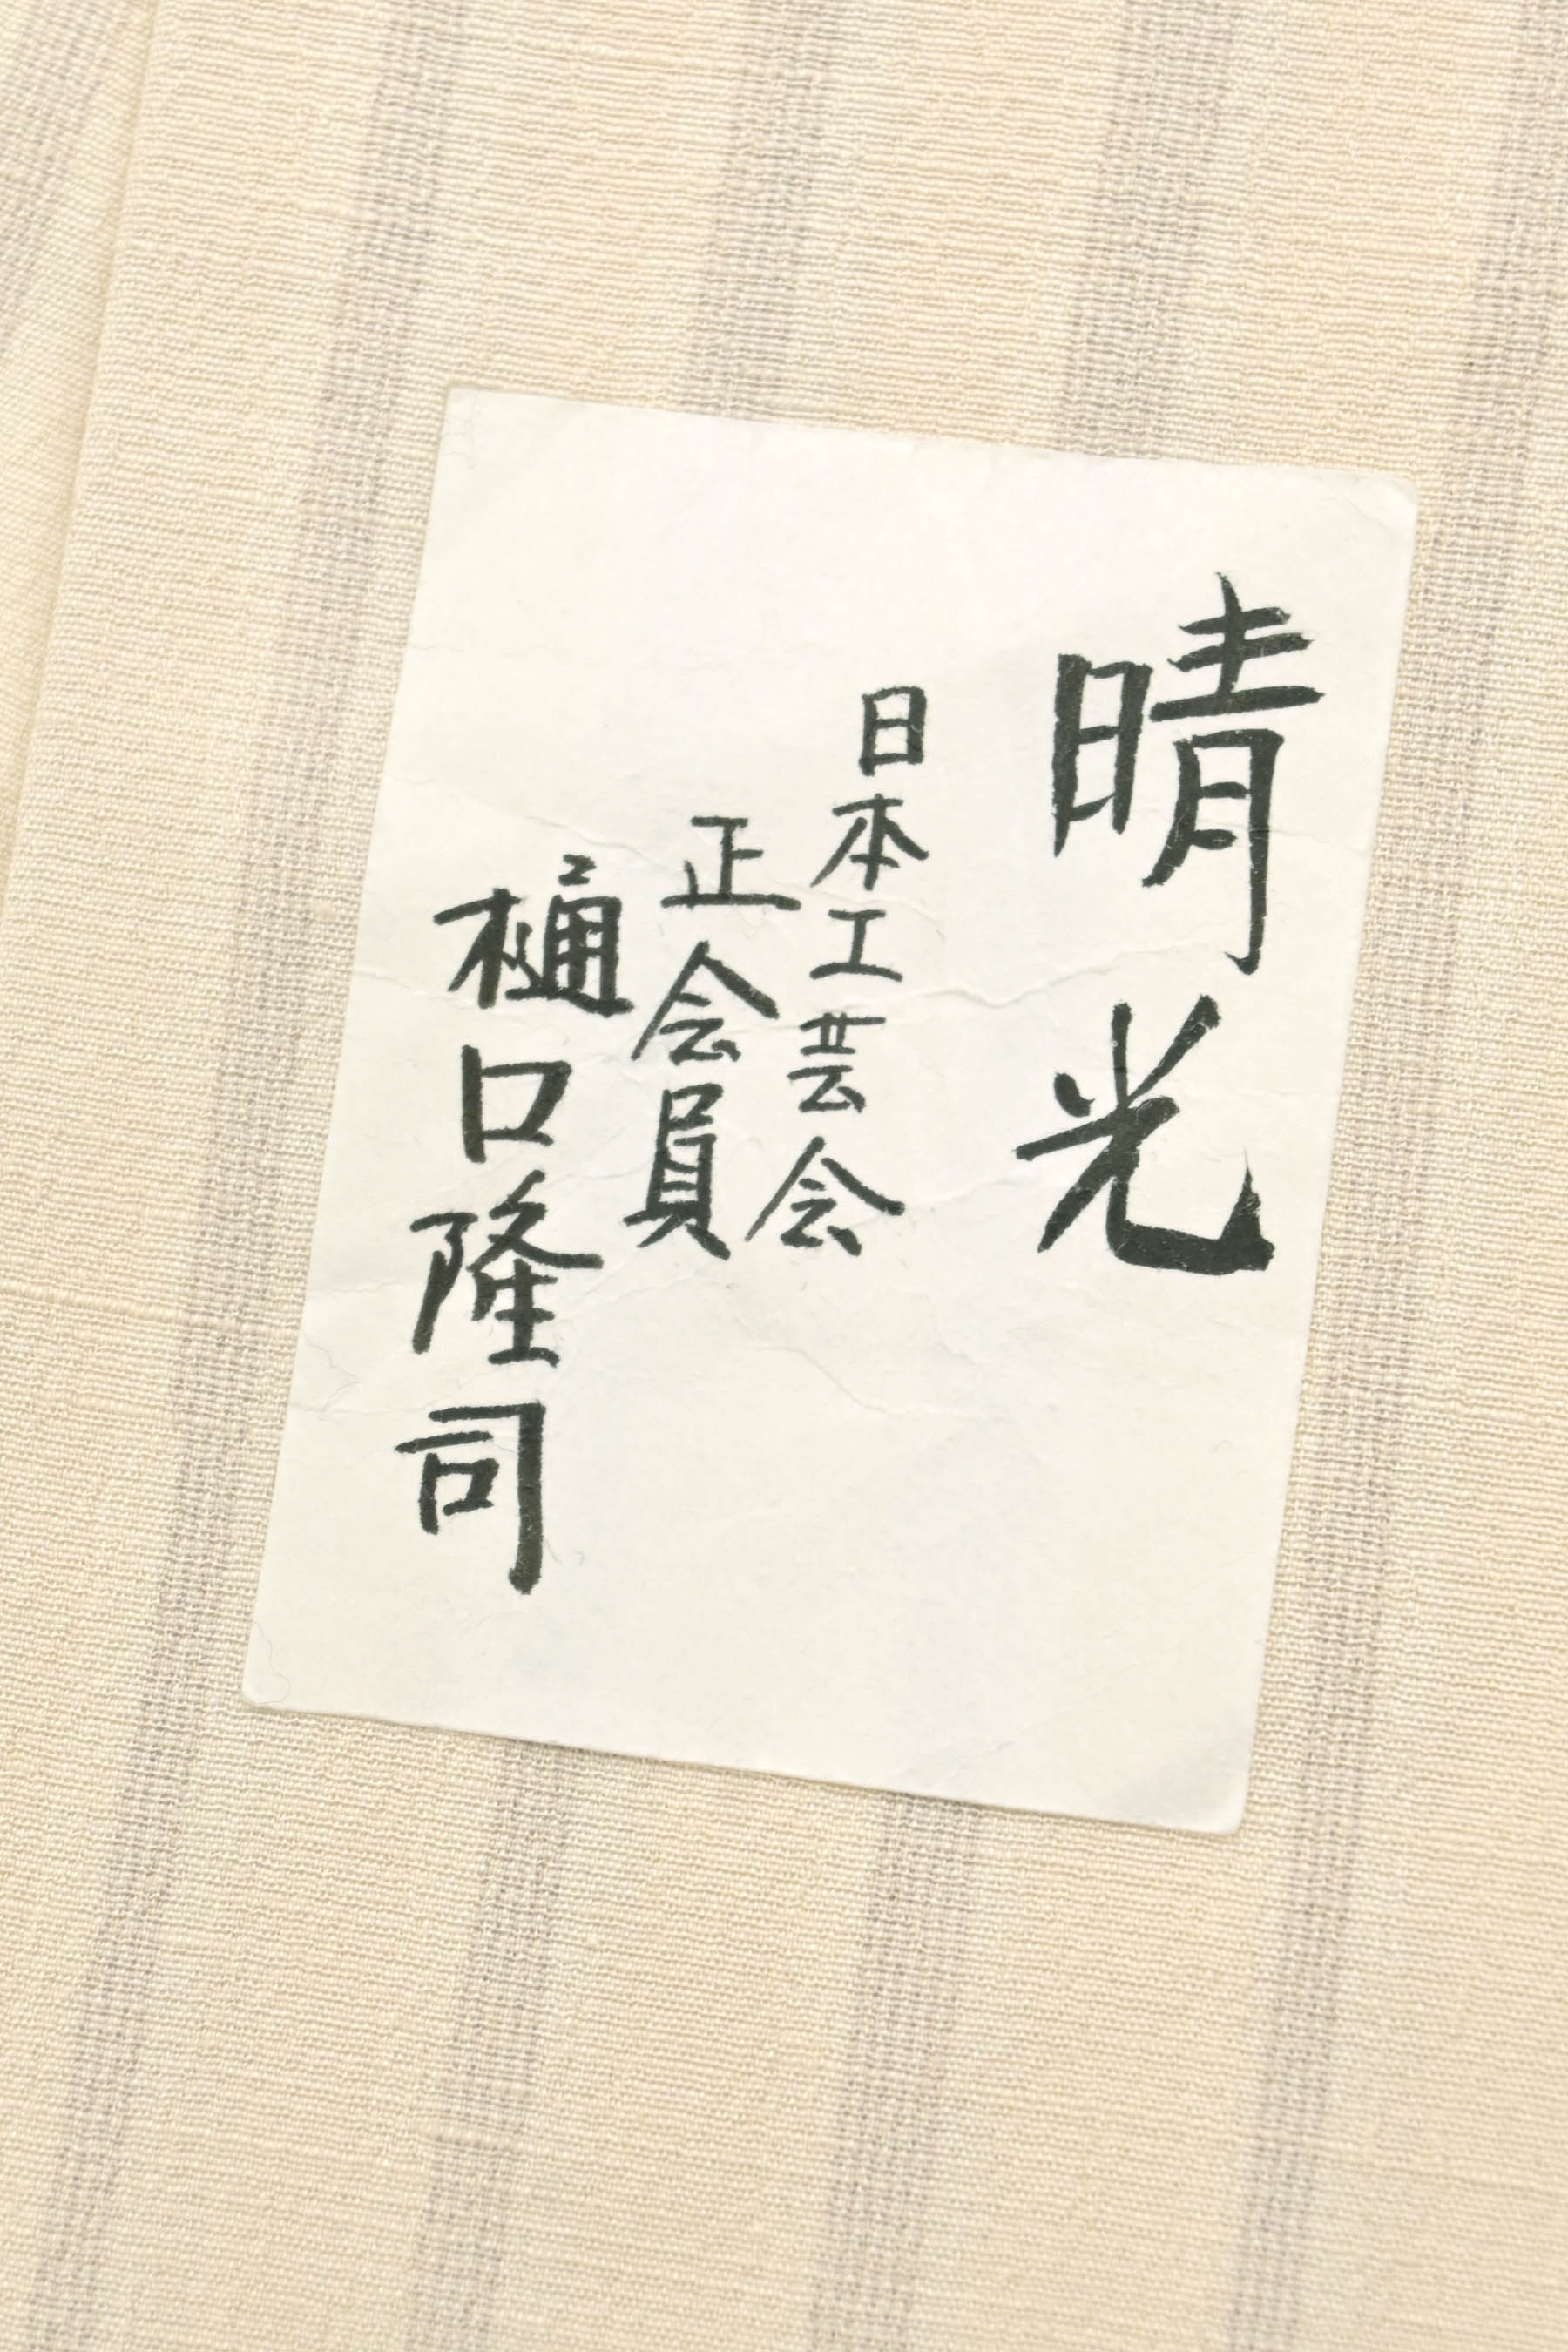 晴光
日本工芸会
正会員
樋口隆司